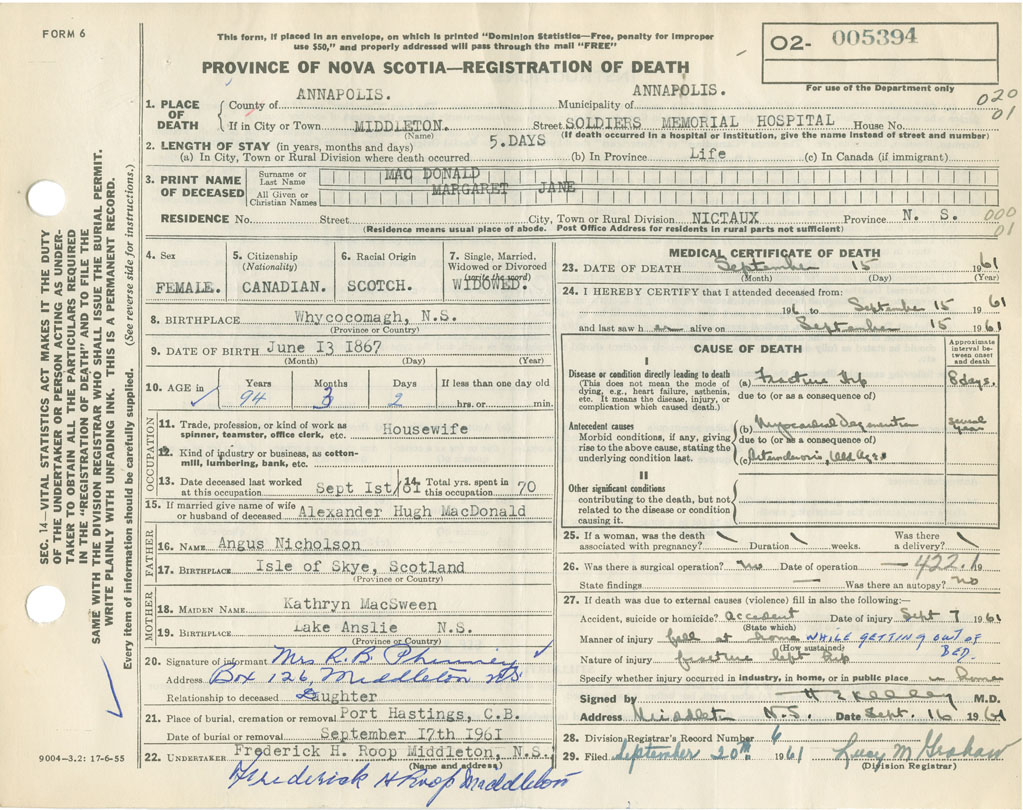 FORM 6
This form, if placed in an envelope, on which is printed "Dominion Statistics—Free, penalty for improper
use $50," and properly addressed will pass through the mail "FREE"
O2- 005394
For use of the Department only
PROVINCE OF NOVA SCOTIA—REGISTRATION OF DEATH
020
01
1. PLACE OF DEATH
County of ANNAPOLIS. Municipality of ANNAPOLIS.
If in City or Town MIDDLETON. Street SOLDIERS MEMORIAL HOSPITAL House No.
(Name) (If death occurred in a hospital or institution, give the name instead of street and number)
2. LENGTH OF STAY (in years, months and days)
(a) In City, Town or Rural Division where death occurred 5.DAYS (b) In Province Life (c) In Canada (if immigrant)
3. PRINT NAME OF DECEASED
Surname or Last Name MAC DONALD
All Given or Christian Names MARGARET JANE
RESIDENCE No. Street City, Town or Rural Division NICTAUX Province N. S.
000
01
(Residence means usual place of abode. Post Office Address for residents in rural parts not sufficient)
4. Sex
FEMALE.
5. Citizenship (Nationality)
CANADIAN.
6. Racial Origin
SCOTCH.
7. Single, Married, Widowed or Divorced (write the word)
WIDOWED.
8. BIRTHPLACE Whycocomagh, N.S.
(Province or Country)
9. DATE OF BIRTH June I3 I867
(Month) (Day) (Year)
10. AGE in Years Months Days If less than one day old
94 3 2 hrs. or min.
OCCUPATION
11. Trade, profession, or kind of work as spinner, teamster, office clerk, etc. Housewife
12. Kind of industry or business, as cotton-mill, lumbering, bank, etc.
13. Date deceased last worked at this occupation Sept Ist/61 14. Total yrs. spent in this occupation 70
15. If married give name of wife or husband of deceased Alexander Hugh MacDonald
FATHER
16. NAME Angus Nicholson
17. BIRTHPLACE Isle of Skye, Scotland
(Province or Country)
MOTHER
18. MAIDEN NAME Kathryn MacSween
19. BIRTHPLACE Lake Anslie N.S.
(Province or Country)
20. Signature of informant Mrs R. B. Phinney
Address Box 126, Middleton NS
Relationship to deceased Daughter
21. Place of burial, cremation or removal Port Hastings, C.B.
Date of burial or removal September I7th I96I
22. UNDERTAKER Frederick H. Roop Middleton, N.S.
(Name and address)
Frederick H Roop Middleton
MEDICAL CERTIFICATE OF DEATH
23. DATE OF DEATH September 15 1961
(Month) (Day) (Year)
24. I HEREBY CERTIFY that I attended deceased from:
196 to September 15 1961
and last saw h er alive on September 15 1961
CAUSE OF DEATH
Approximate interval between onset and death
I
Disease or condition directly leading to death
(This does not mean the mode of dying, e.g., heart failure, asthenia, etc. It means the disease, injury, or complication which caused death.)
(a) Fracture Hip 8 days.
due to (or as a consequence of)
Antecedent causes
Morbid conditions, if any, giving rise to the above cause, stating the underlying condition last.
(b) Myocardial Degeneration several years
due to (or as a consequence of)
(c) Old Age
II
Other significant conditions
contributing to the death, but not related to the disease or condition causing it.
25. If a woman, was the death associated with pregnancy? Duration weeks. Was there a delivery?
26. Was there a surgical operation? no Date of operation
422.1
State findings Was there an autopsy? no
27. If death was due to external causes (violence) fill in also the following:—
Accident, suicide or homicide? accident Date of injury Sept 7 1961
(State which)
Manner of injury fell at home WHILE GETTING OUT OF BED.
(How sustained)
Nature of injury fracture left hip
Specify whether injury occurred in industry, in home, or in public place in home
Signed by H E Kelley M.D.
Address Middleton N.S. Date Sept. 16 1961
28. Division Registrar's Record Number 6
29. Filed September 20th 1961 Lucy M Graham
(Division Registrar)
SEC. 14—VITAL STATISTICS ACT MAKES IT THE DUTY
OF THE UNDERTAKER OR PERSON ACTING AS UNDER-
TAKER TO OBTAIN ALL THE PARTICULARS REQUIRED
IN THE "REGISTRATION OF DEATH" AND TO FILE THE
SAME WITH THE DIVISION REGISTRAR WHO SHALL ISSUE THE BURIAL PERMIT.
WRITE PLAINLY WITH UNFADING INK. THIS IS A PERMANENT RECORD.
Every item of information should be carefully supplied. (See reverse side for instructions.)
9004-3.2: 17-6-55